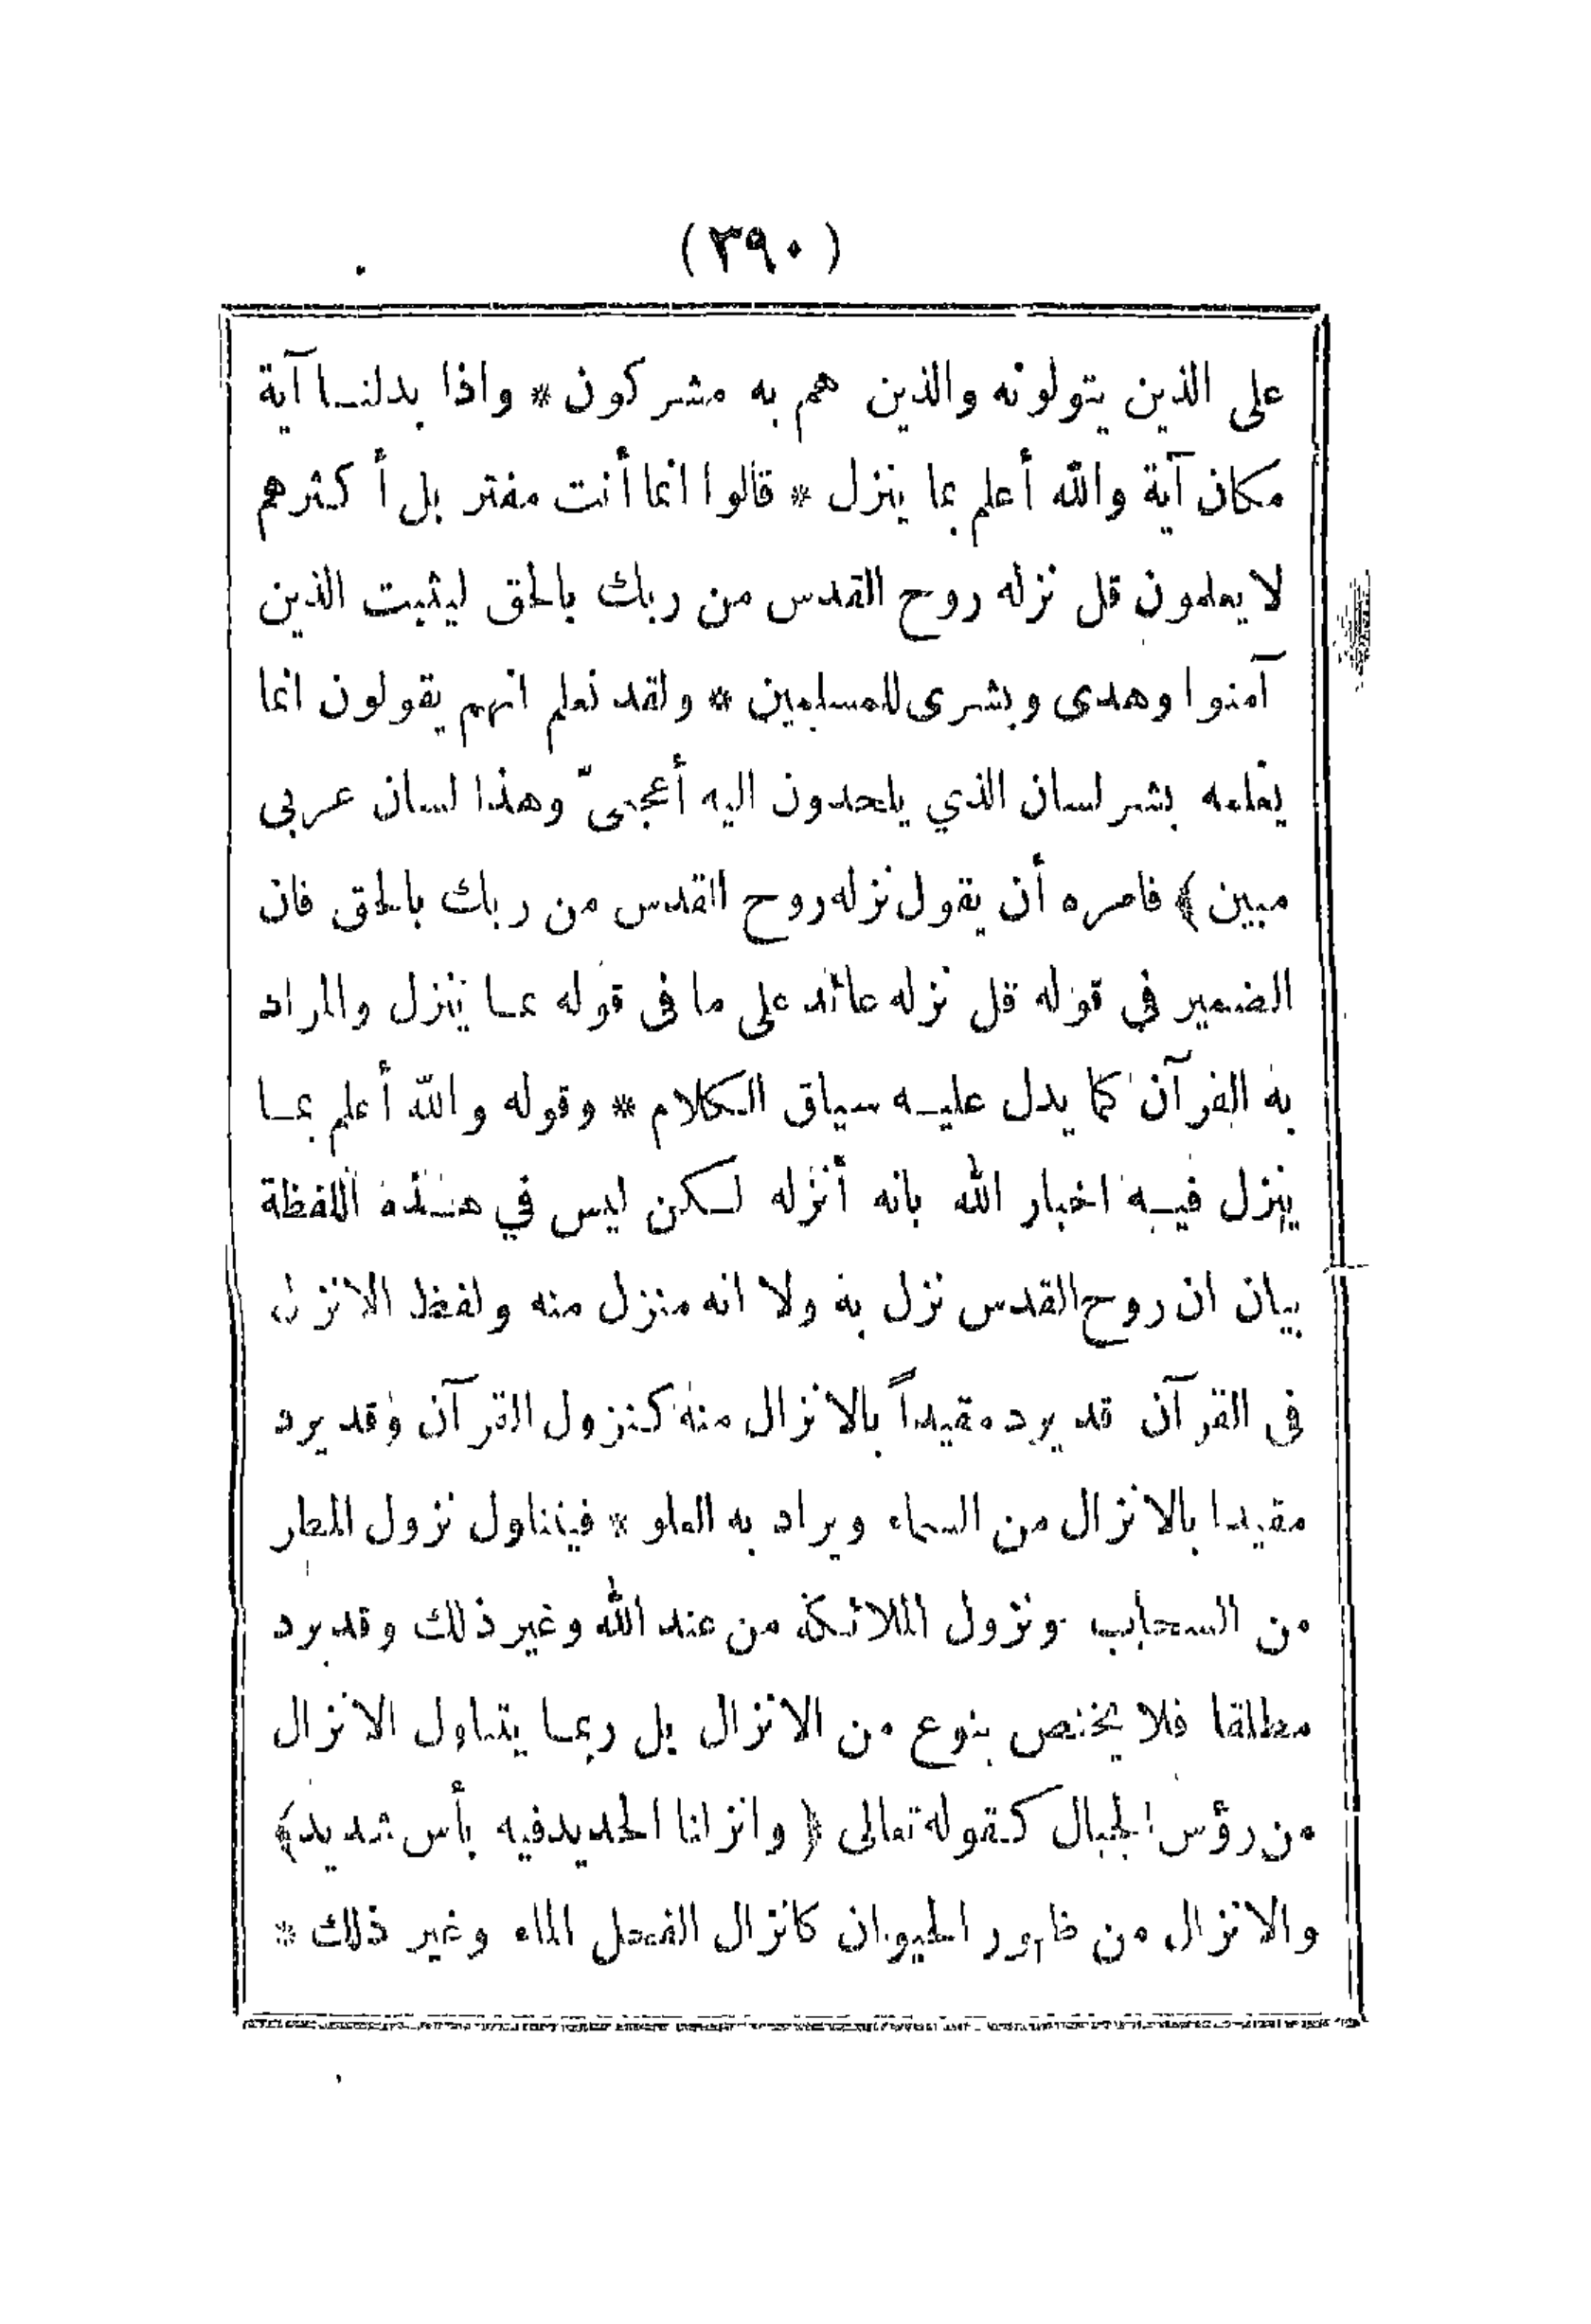 (٣٩٠)
على الذين يتولونه والذين هم به مشركون * واذا بدلنا آية
مكان آية والله أعلم بما ينزل * قالوا انما أنت مفتر بل أكثرهم
لا يعلمون قل نزله روح القدس من ربك بالحق ليثبت الذين
آمنوا وهدى وبشرى للمسلمين * ولقد نعلم انهم يقولون انما
يعلمه بشر لسان الذي يلحدون اليه أعجمىّ وهذا لسان عربى
مبين ﴾ فامره أن يقول نزله روح القدس من ربك بالحق فان
الضمير في قوله قل نزله عائد على ما فى قوله بما ينزل والمراد
به القرآن كما يدل عليه سياق الكلام * وقوله والله أعلم بما
ينزل فيه اخبار الله بانه أنزله لكن ليس في هذه اللفظة
بيان ان روح القدس نزل به ولا انه منزل منه ولفظ الانزال
فى القرآن قد يرد مقيداً بالانزال منه كنزول القرآن وقد يرد
مقيدا بالانزال من السماء ويراد به العلو * فيتناول نزول المطر
من السحاب ونزول الملائكة من عند الله وغير ذلك وقد يرد
مطلقا فلا يختص بنوع من الانزال بل ربما يتناول الانزال
من رؤس الجبال كقوله تعالى ﴿ وانزلنا الحديد فيه بأس شديد﴾
والانزال من ظهور الحيوان كانزال الفحل الماء وغير ذلك *